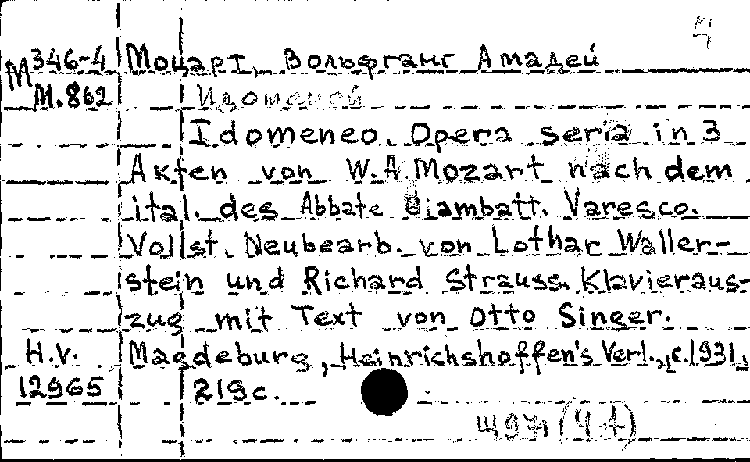 4
М 346-4 Моцарт, Вольфганг Амадей
М.862 Идоменей
Idomeneo. Opera seria in 3
Akten von W.A. Mozart nach dem
ital. des Abbate Giambatt. Varesco.
Vollst. Neubearb. von Lothar Waller-
stein und Richard Strauss. Klavieraus-
zug mit Text von Otto Singer.
H.v. Magdeburg, Heinrichshoffen's Verl., c.1931.
12965 219 c.